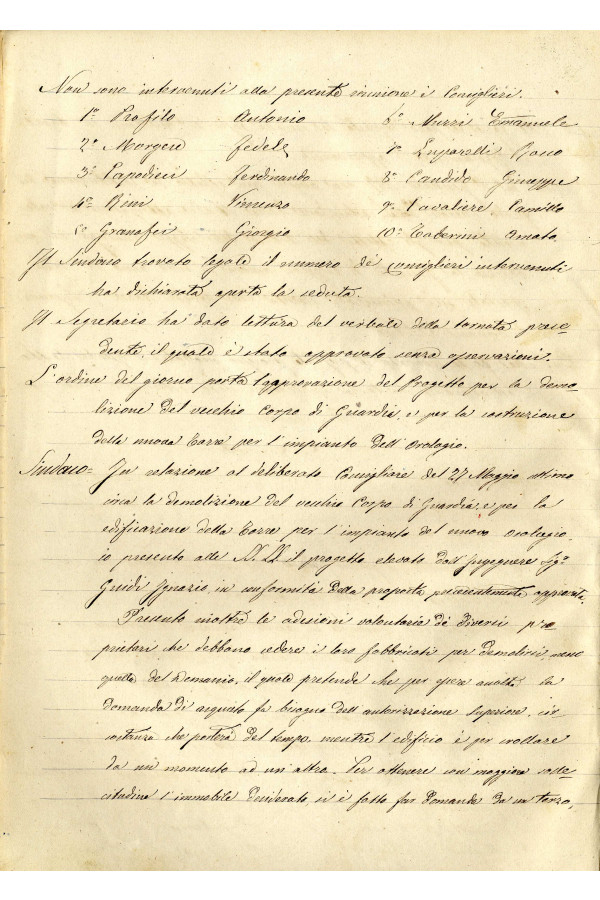 Non sono intervenuti alla presente riunione i Consiglieri.
1º Profilo Antonio 6º Muzzi Emanuele
2º Morgese Fedele 7º Luparelli Rocco
3º Capodieci Ferdinando 8º Candido Giuseppe
4º Rini Vincenzo 9º Cavaliere Camillo
5º Granafei Giorgio 10º Taberini Amato
Il Sindaco trovato legale il numero dei Consiglieri intervenuti
ha dichiarata aperta la seduta.
Il Segretario ha dato lettura del verbale della tornata prece-
dente, il quale è stato approvato senza osservazioni.
L'ordine del giorno porta l'approvazione del Progetto per la demo-
lizione del vecchio Corpo di Guardia, e per la costruzione
della nuova Torre per l'impianto dell'Orologio.
Sindaco = In relazione al deliberato Consigliare del 27 Maggio ultimo
circa la demolizione del vecchio Corpo di Guardia, e per la
edificazione della Torre per l'impianto del nuovo orologio
io presento alle il progetto elevato dall'Ingegnere Sigr
Guidi Ignazio, in conformità della proposta precedentemente
Presento inoltre le adesioni volontarie di diversi pro
prietari che debbono cedere i loro fabbricati per demolirsi, meno
quello del Demanio, il quale pretende che per essere accolta la
domanda di acquisto fa bisogno dell'autorizzazione superiore, cir
costanza che porterà del tempo, mentre l'edificio è per crollare
da un momento ad un'altro. Per ottenere con maggiore solle-
citudine l'immobile desiderato, si è fatto far domanda da un terzo,